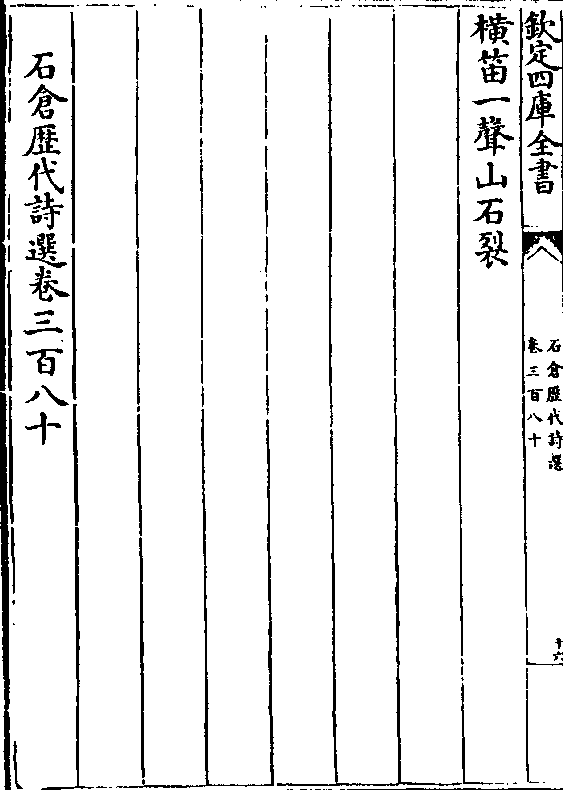 欽定四庫全書
石倉歷代詩選
卷三百八十
十六
橫笛一聲山石裂
石倉歷代詩選卷三百八十